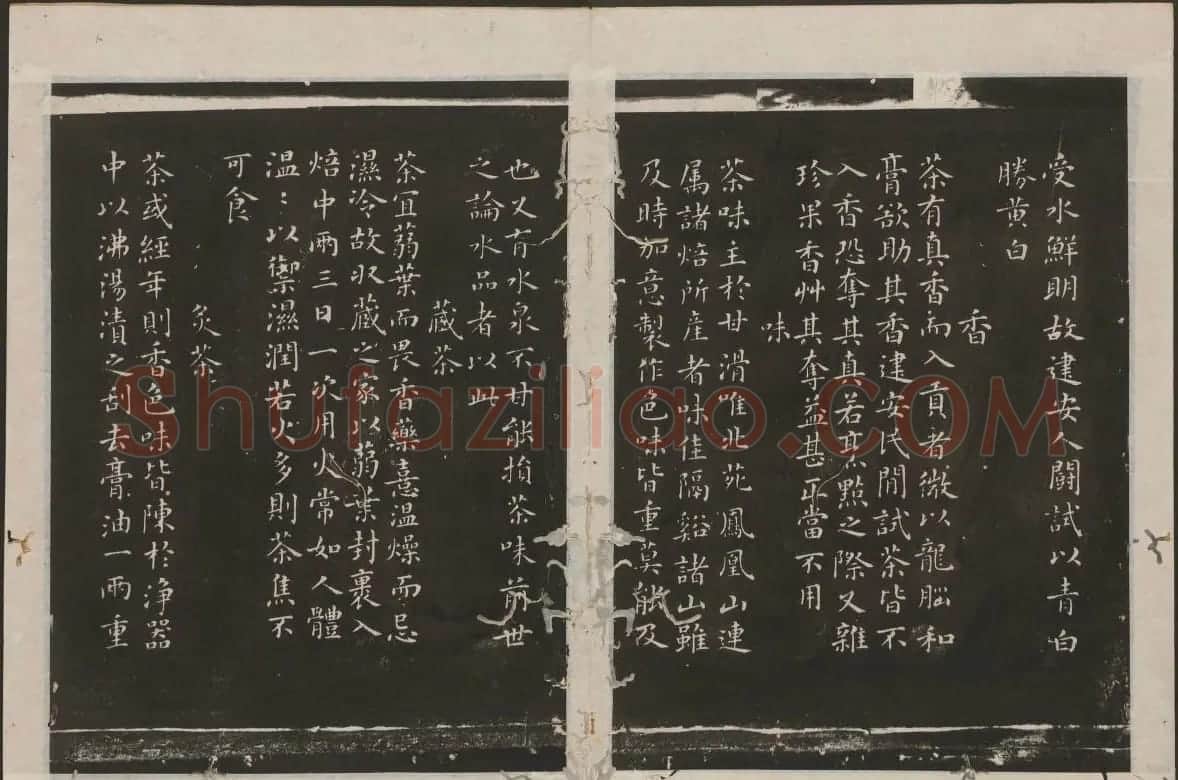 受水鮮明故建安人鬭試以青白
勝黄白
香
茶有真香而入貢者微以龍腦和
膏欲助其香建安民間試茶皆不
入香恐奪其真若烹點之際又雜
珍果香艸其奪益甚正當不用
味
茶味主於甘滑唯北苑鳳凰山連
属諸焙所產者味佳隔谿諸山雖
及時加意製作色味皆重莫能及
也又有水泉不甘能損茶味前世
之論水品者以此
藏茶
茶宜蒻葉而畏香藥憙温燥而忌
濕冷故收藏之家以蒻葉封裹入
焙中兩三日一次用火常如人體
温〻以禦濕潤若火多則茶焦不
可食
炙茶
茶或經年則香色味皆陳於淨器
中以沸湯漬之刮去膏油一兩重
Shufaziliao.COM